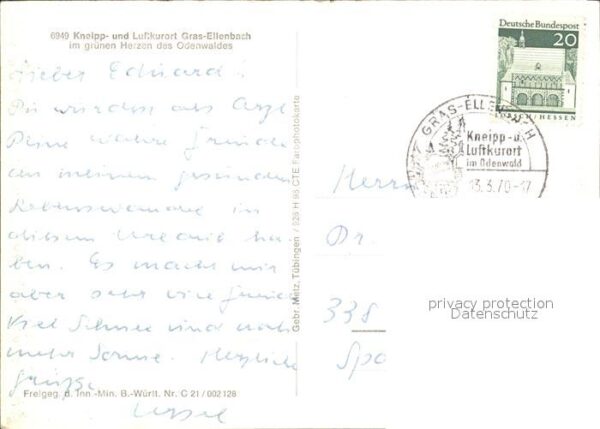 6949 Kneipp- und Luftkurort Gras-Ellenbach
im grünen Herzen des Odenwaldes
Lieber Eduard!
Du würdest als Arzt
Deine wahre Freude
an meinem gesunden
Lebenswandel in
diesem Urlaub ha-
ben. Es macht mir
aber sehr viel Freude
Viel Schnee und noch
mehr Sonne. Herzliche
Grüsse
Freigeg. d. Inn.-Min. B.-Württ. Nr. C 21 / 002128
Gebr. Metz, Tübingen / 926 H 96 CTE Farbphotokarte
Deutsche Bundespost
20
LORSCH / HESSEN
GRAS-ELLENBACH
Kneipp- u.
Luftkurort
im Odenwald
13.3.70-17
Herrn
Dr.
338
privacy protection
Datenschutz